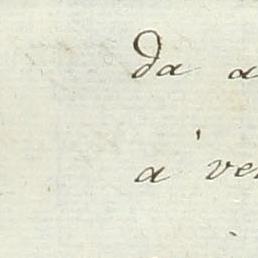 da a
a ve